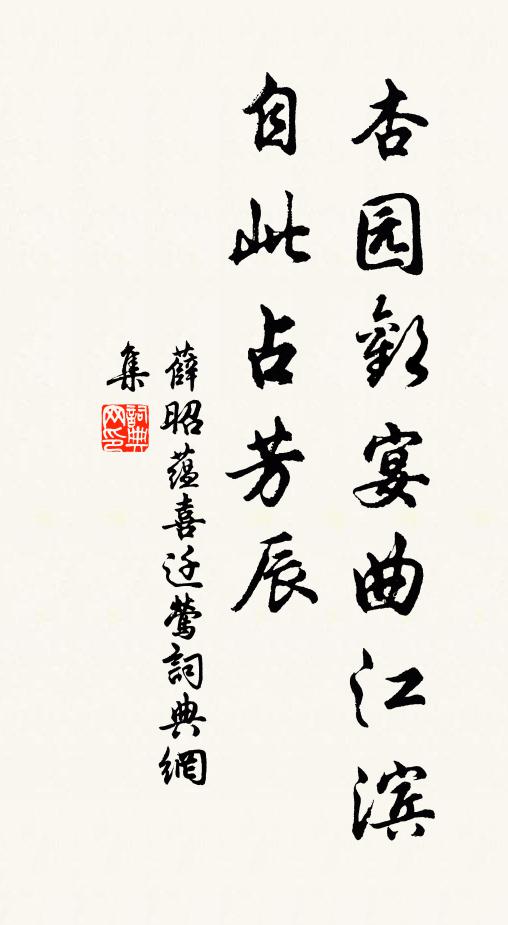 杏园歡宴曲江滨
自此占芳辰
薛昭蕴喜迁莺詞典網
集
詞典网印